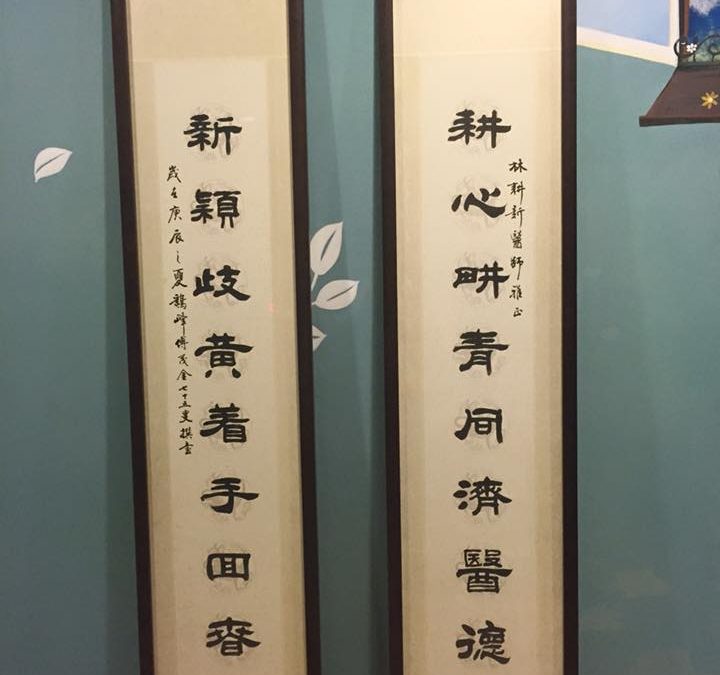 耕心畊青同濟醫德
林耕新醫師雅正
新穎歧黃着手囬春
歲在庚辰之夏峰傅茂金七十五叟撰書